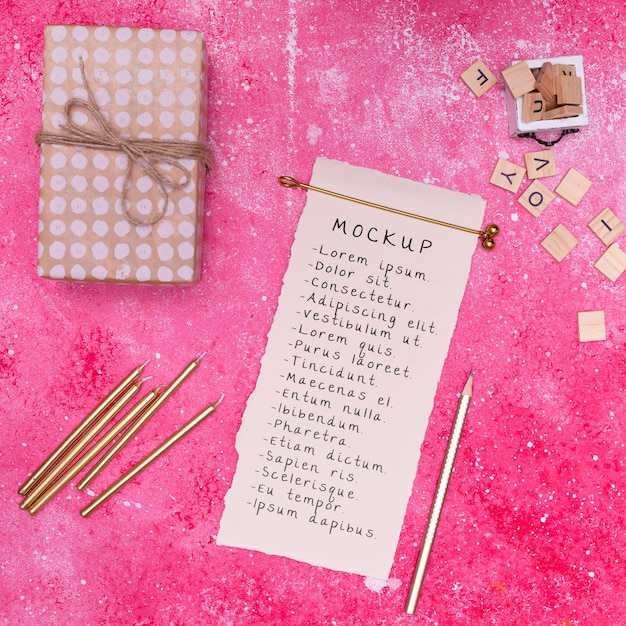 MOCKUP
-Lorem ipsum.
-Dolor sit.
-Consectetur.
-Adipiscing elit.
-Vestibulum ut.
-Lorem quis.
-Purus laoreet.
-Tincidunt.
-Maecenas el.
-Entum nulla.
-Ibibendum.
-Pharetra.
-Etiam dictum.
-Sapien ris.
-Scelerisque.
-Eu tempor.
-Ipsum dapibus.
F
V
Y
O
I